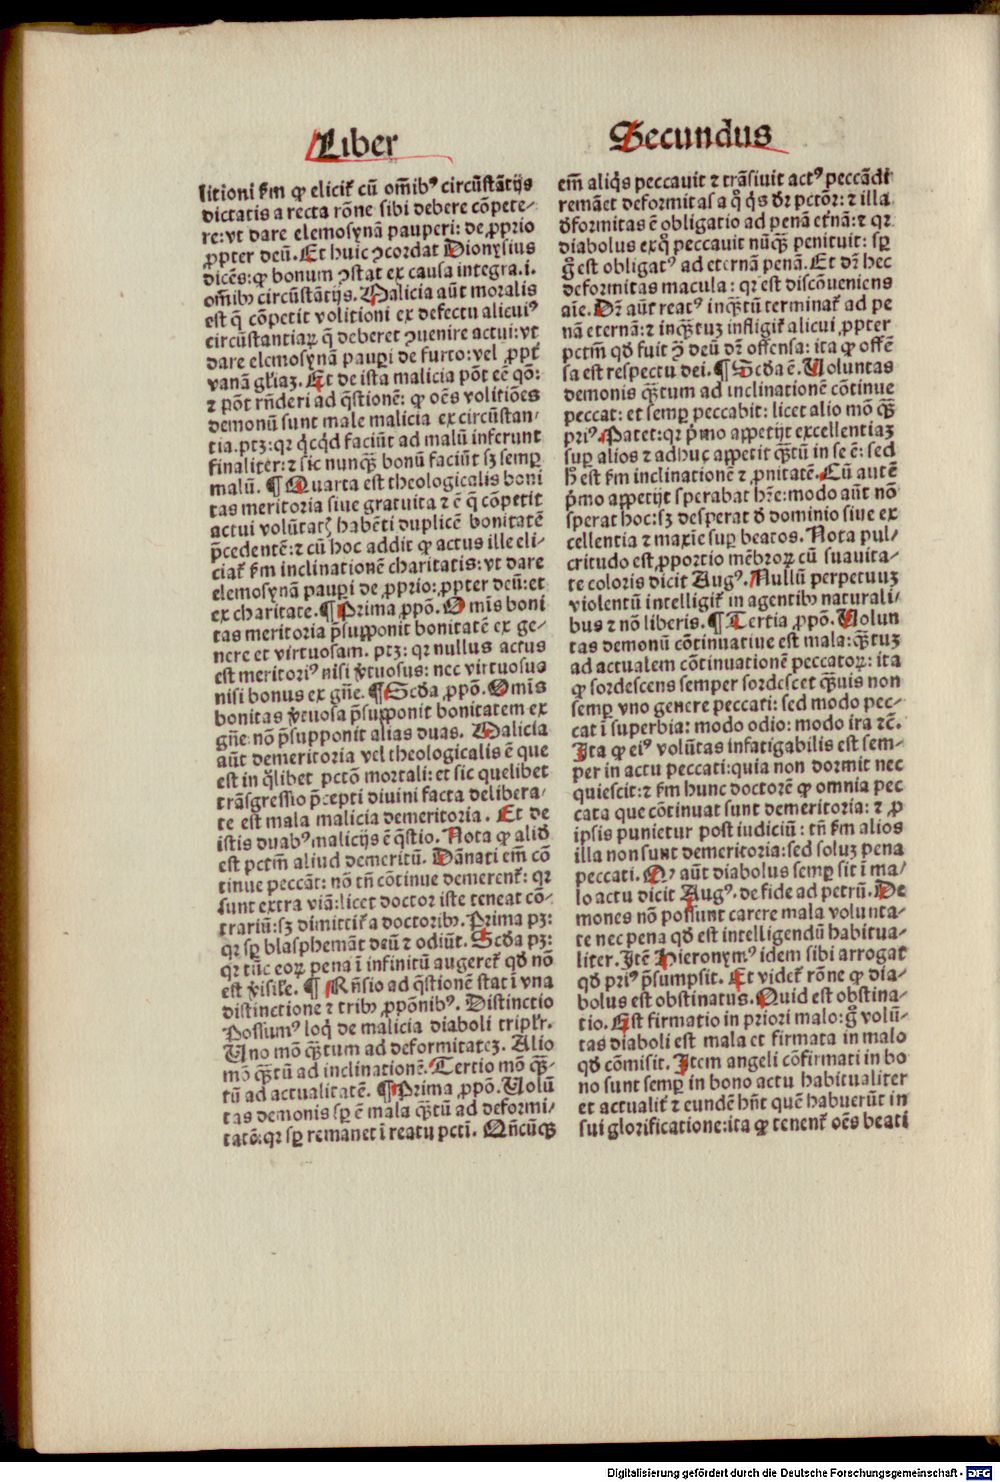 Liber
Secundus
litioni ẜm ꝙ elicit᷑ cū oīm̄ibꝰ circūstātijs
dictatis a recta rōne sibi debere cōpete-
re: vt dare elemosynā pauperi: de ꝓprio
ꝓpter deū. Et huic ꝯcordat Dionysius
dicēs: ꝙ bonum ꝯstat ex causa integra .i.
om̄ibꝰ circūstātijs. Malicia aūt moralis
est q̄ cōpetit volitioni ex defectu alicuiꝰ
circūstantiaꝝ q̄ deberet ꝯuenire actui: vt
dare elemosynā paupi de furto: vel ꝓpt̄
vanā gl̄iaꝫ. Et de ista malicia pōt eē qō:
⁊ pōt rn̄deri ad q̄stionē: ꝙ oēs volitiōes
demonū sunt male malicia ex circūstan-
tia. ptꝫ: qꝛ qͥcqͥd faciūt ad malū inferunt
finaliter: ⁊ sic nunqꝫ̄ bonū faciūt sꝫ semꝑ
malū. ¶ Quarta est theologicalis boni
tas meritoria siue gratuita ⁊ ē q̄ cōpetit
actui volūtatꝭ habēti duplicē bonitatē
p̄cedentē: ⁊ cū hoc addit ꝙ actus ille eli-
ciat᷑ ẜm inclinationē charitatis: vt dare
elemosynā paupi de ꝓprio: ꝓpter deū: et
ex charitate. ¶ Prima ꝓpō. Om̄is boni
tas meritoria p̄supponit bonitatē ex ge-
nere et virtuosam. ptꝫ: qꝛ nullus actus
est meritoriꝰ nisi v̄tuosus: nec virtuosus
nisi bonus ex gn̄e. ¶ Scd̄a ꝓpō. Om̄is
bonitas v̄tuosa p̄supponit bonitatem ex
gn̄e: nō p̄supponit alias duas. Malicia
aūt demeritoria vel theologicalis ē que
est in qͦlibet pctō mortali: et sic quelibet
trāsgressio p̄cepti diuini facta delibera-
te est mala malicia demeritoria. Et de
istis duabꝰ malicijs ē q̄stio. Nota ꝙ aliđ
est pctm̄ aliud demeritū. Dānati em̄ cō
tinue peccāt: nō tn̄ cōtinue demerent᷑: qꝛ
sunt extra viā: licet doctor iste teneat cō-
trariū: sꝫ dimittit᷑ a doctoribꝰ. Prima pꝫ:
qꝛ sꝑ blasphemāt deū ⁊ odiūt. Scd̄a pꝫ:
qꝛ tūc eoꝝ pena ī infinitū augeret᷑ qđ nō
est v̄isil̄e. ¶ Rn̄sio ad q̄stionē stat ī vna
distinctione ⁊ tribꝰ ꝓpōnibꝰ. Distinctio
Possumꝰ loqͥ de malicia diaboli triplr̄.
Uno mō qꝫ̄tum ad deformitateꝫ. Alio
mō qꝫ̄tū ad inclinationē. Tertio mō qꝫ̄-
tū ad actualitatē. ¶ Prima ꝓpō. Uolū
tas demonis sꝑ ē mala qꝫ̄tū ad deformi-
tatē: qꝛ sꝑ remanet ī reatu pcti. Qn̄cūqꝫ
em̄ aliqͥs peccauit ⁊ trāsiuit actꝰ peccādi
remāet deformitas a qͦ qͥs dꝛ pctōꝛ: ⁊ illa
đformitas ē obligatio ad penā et̄nā: ⁊ qꝛ
diabolus exqͦ peccauit nūqꝫ̄ penituit: sꝑ
gͦ est obligatꝰ ad eternā penā. Et dꝛ̄ hec
deformitas macula: qꝛ est discōueniens
aīe. Dꝛ̄ aūt reatꝰ inqꝫ̄tū terminat᷑ ad pe
nā eternā: ⁊ inqꝫ̄tuꝫ infligit᷑ alicui ꝓpter
pctm̄ qđ fuit ꝯ̄ deū dꝛ̄ offensa: ita ꝙ offē
sa est respectu dei. ¶ Scd̄a ē. Uoluntas
demonis qꝫ̄tum ad inclinationē cōtinue
peccat: et semꝑ peccabit: licet alio mō qꝫ̄
priꝰ. Patet: qꝛ pͥmo appetijt excellentiaꝫ
suꝑ alios ⁊ adhuc appetit qꝫ̄tū in se ē: sed
hͦ est ẜm inclinationē ⁊ ꝓnitatē. Cū autē
pͥmo appetijt sperabat hr̄e: modo aūt nō
sperat hoc: sꝫ desperat đ dominio siue ex
cellentia ⁊ maxīe suꝑ beatos. Nota pul-
critudo est ꝓportio mēbroꝝ cū suauita-
te coloris dicit Augꝰ. Nullū perpetuuꝫ
violentū intelligit᷑ in agentibꝰ naturali-
bus ⁊ nō liberis. ¶ Tertia ꝓpō. Uolun
tas demonū cōtinuatiue est mala: qꝫ̄tuꝫ
ad actualem cōtinuationē peccatoꝝ: ita
ꝙ sordescens semper sordescet qꝫ̄uis non
semꝑ vno genere peccati: sed modo pec-
cat ī superbia: modo odio: modo ira ⁊c̄.
Ita ꝙ eiꝰ volūtas infatigabilis est sem-
per in actu peccati: quia non dormit nec
quiescit: ⁊ ẜm hunc doctorē ꝙ omnia pec
cata que cōtinuat sunt demeritoria: ⁊ ꝓ
ipsis punietur post iudiciū: tn̄ ẜm alios
illa non sunt demeritoria: sed soluꝫ pena
peccati. Qꝙ aūt diabolus semꝑ sit ī ma-
lo actu dicit Augꝰ. de fide ad petrū. De
mones nō possunt carere mala volunta-
te nec pena qđ est intelligendū habitua-
liter. Itē Hieronymꝰ idem sibi arrogat
qđ priꝰ p̄sumpsit. Et videt᷑ rōne ꝙ dia-
bolus est obstinatus. Quid est obstina-
tio. Est firmatio in priori malo: gͦ volū-
tas diaboli est mala et firmata in malo
qđ cōmisit. Item angeli cōfirmati in bo
no sunt semꝑ in bono actu habitualiter
et actualit᷑ ⁊ eundē hn̄t quē habuerūt in
sui glorificatione: ita ꝙ tenent᷑ oēs beati
Digitalisierung gefördert durch die Deutsche Forschungsgemeinschaft - DFG